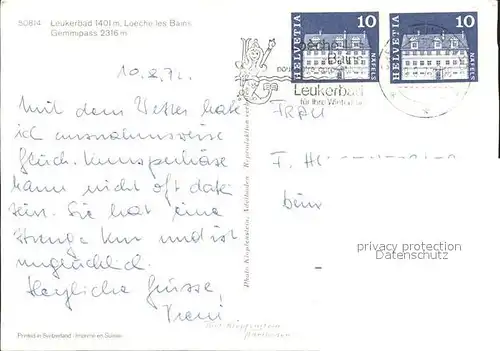 50814 Leukerbad 1401 m, Loèche les Bains
Gemmipass 2316 m
HELVETIA 10 NÄFELS
HELVETIA 10 NÄFELS
Loèche-l
Bain
Leukerbad
für Ihre
10.2.72.
Mit dem Wetter habe
ich ausnahmsweise
Glück.
kann nicht oft dabei
sein. Sie hat eine
strenge Kur und ist
unglücklich.
Herzliche Grüsse,
Vreni
FRAU
F. H
privacy protection
Datenschutz
Photo Klopfenstein, Adelboden - Reproduktion
Printed in Switzerland - Imprimé en Suisse
Foto Klopfenstein
Adelboden